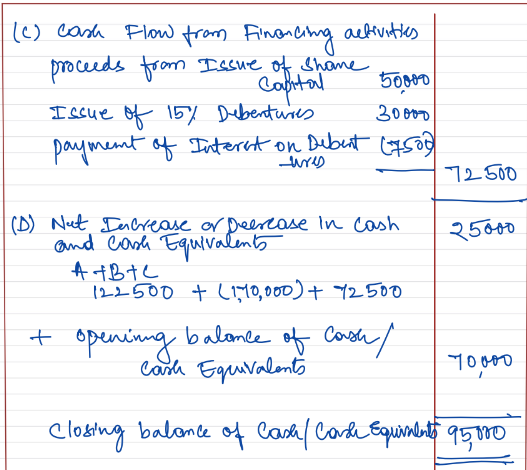 (C) Cash Flow from Financing activities
proceeds from Issue of Share
Capital 50,000
Issue of 15% Debentures 30000
payment of Interest on Debent (7500)
-ures
72500
(D) Net Increase or Decrease in Cash 25000
and Cash Equivalents
A+B+C
122500 + (1,70,000) + 72500
+ opening balance of Cash/
Cash Equivalents 70,000
Closing balance of Cash/Cash Equivalents 95,000